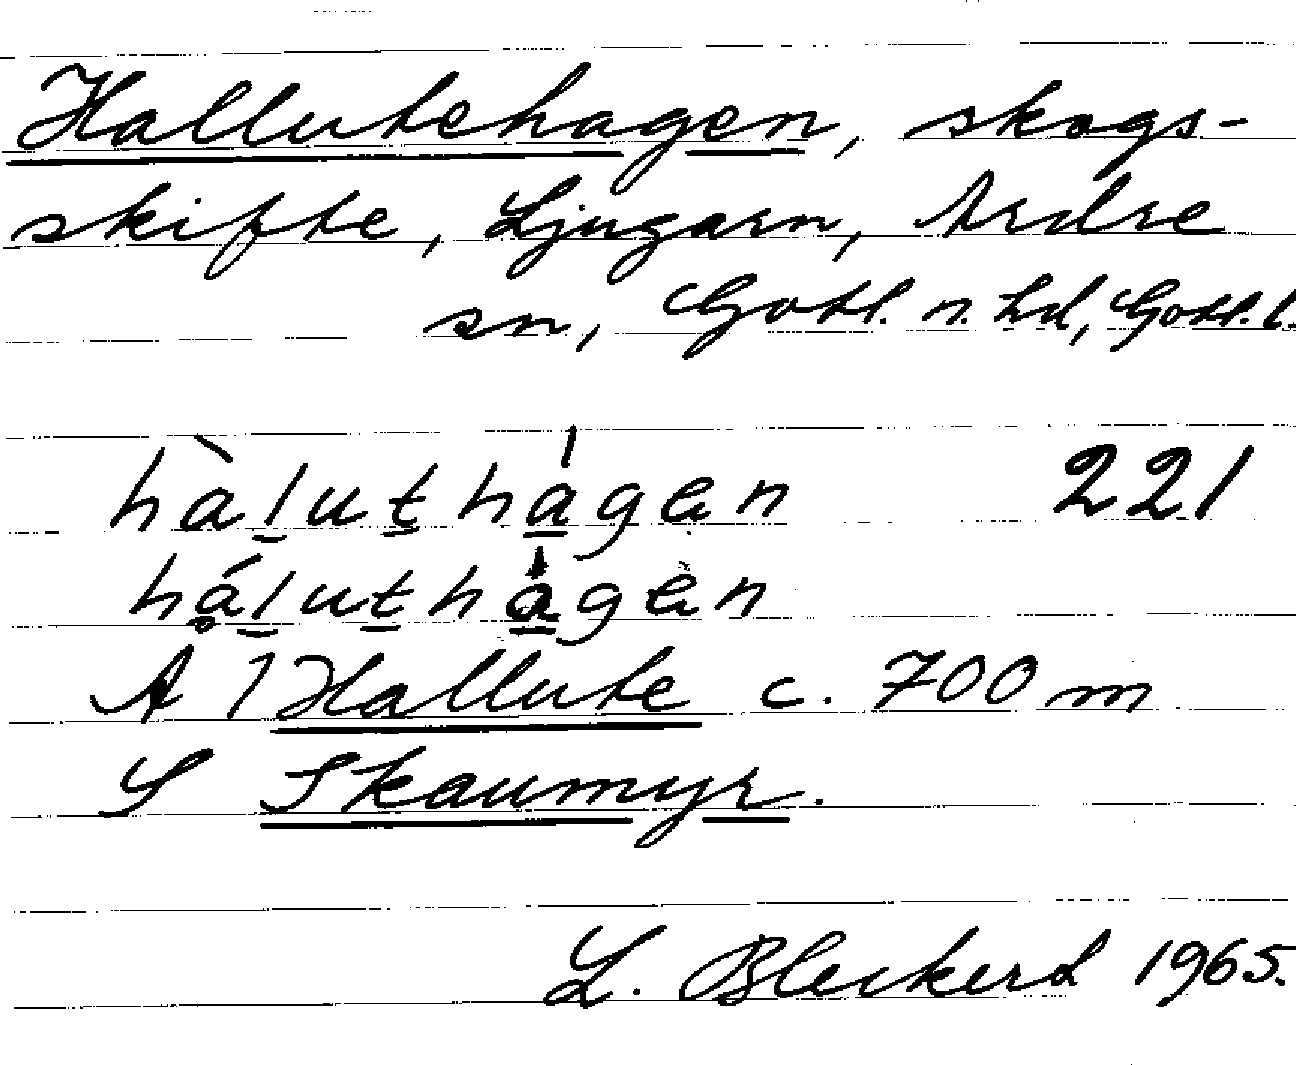 Hallutehagen, skogs-
skifte, Ljugarn, Ardre
sn, Gotl. n. hd, Gotl. l.
hàlu̱ṯhá̱gen 221
hálu̱ṯhá̱gen
Å i Hallute c. 700 m
S Skaumyr.
L. Bleckerd 1965.